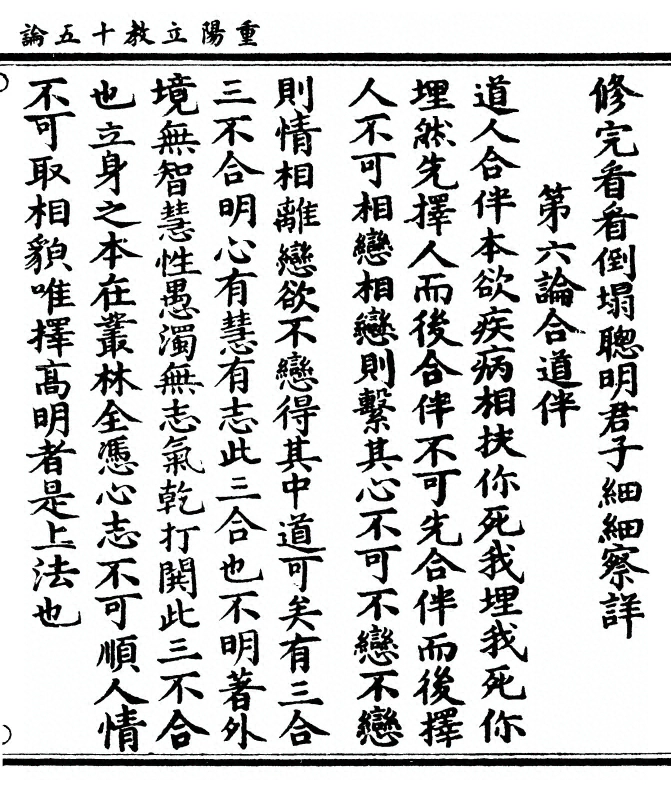 重陽立教十五論
修完看看倒塌聰明君子細細察詳
第六論合道伴
道人合伴本欲疾病相扶你死我埋我死你
埋然先擇人而後合伴不可先合伴而後擇
人不可相戀相戀則繫其心不可不戀不戀
則情相離戀欲不戀得其中道可矣有三合
三不合明心有慧有志此三合也不明著外
境無智慧性愚濁無志氣乾打鬨此三不合
也立身之本在叢林全憑心志不可順人情
不可取相貌唯擇高明者是上法也